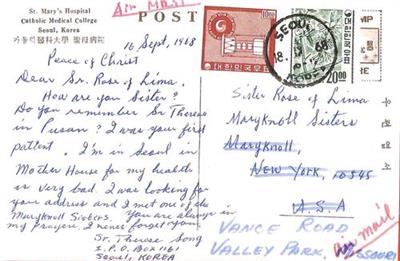 St. Mary's Hospital
Catholic Medical College
Seoul, Korea
가톨릭醫科大學 聖母病院
Air Mail
POST
16 Sept, 1968
Peace of Christ
Dear Sr. Rose of Lima.
How are you Sister?
Do you remember Sr. Therese
in Pusan? I was your first
patient. I'm in Seoul in
Mother House for my health
is very bad. I was looking for
your address and I met one of the
Maryknoll Sisters. You are always in
my prayers. I never forget you.
Sr. Therese Song
I.P.O. Box 1161
Seoul, KOREA
10.00
대한민국우표
SEOUL
68
20.00
Sister Rose of Lima
Maryknoll Sisters
Maryknoll,
New York, 10545
U.S.A
VANCE ROAD
VALLEY PARK, MISSOURI
air mail